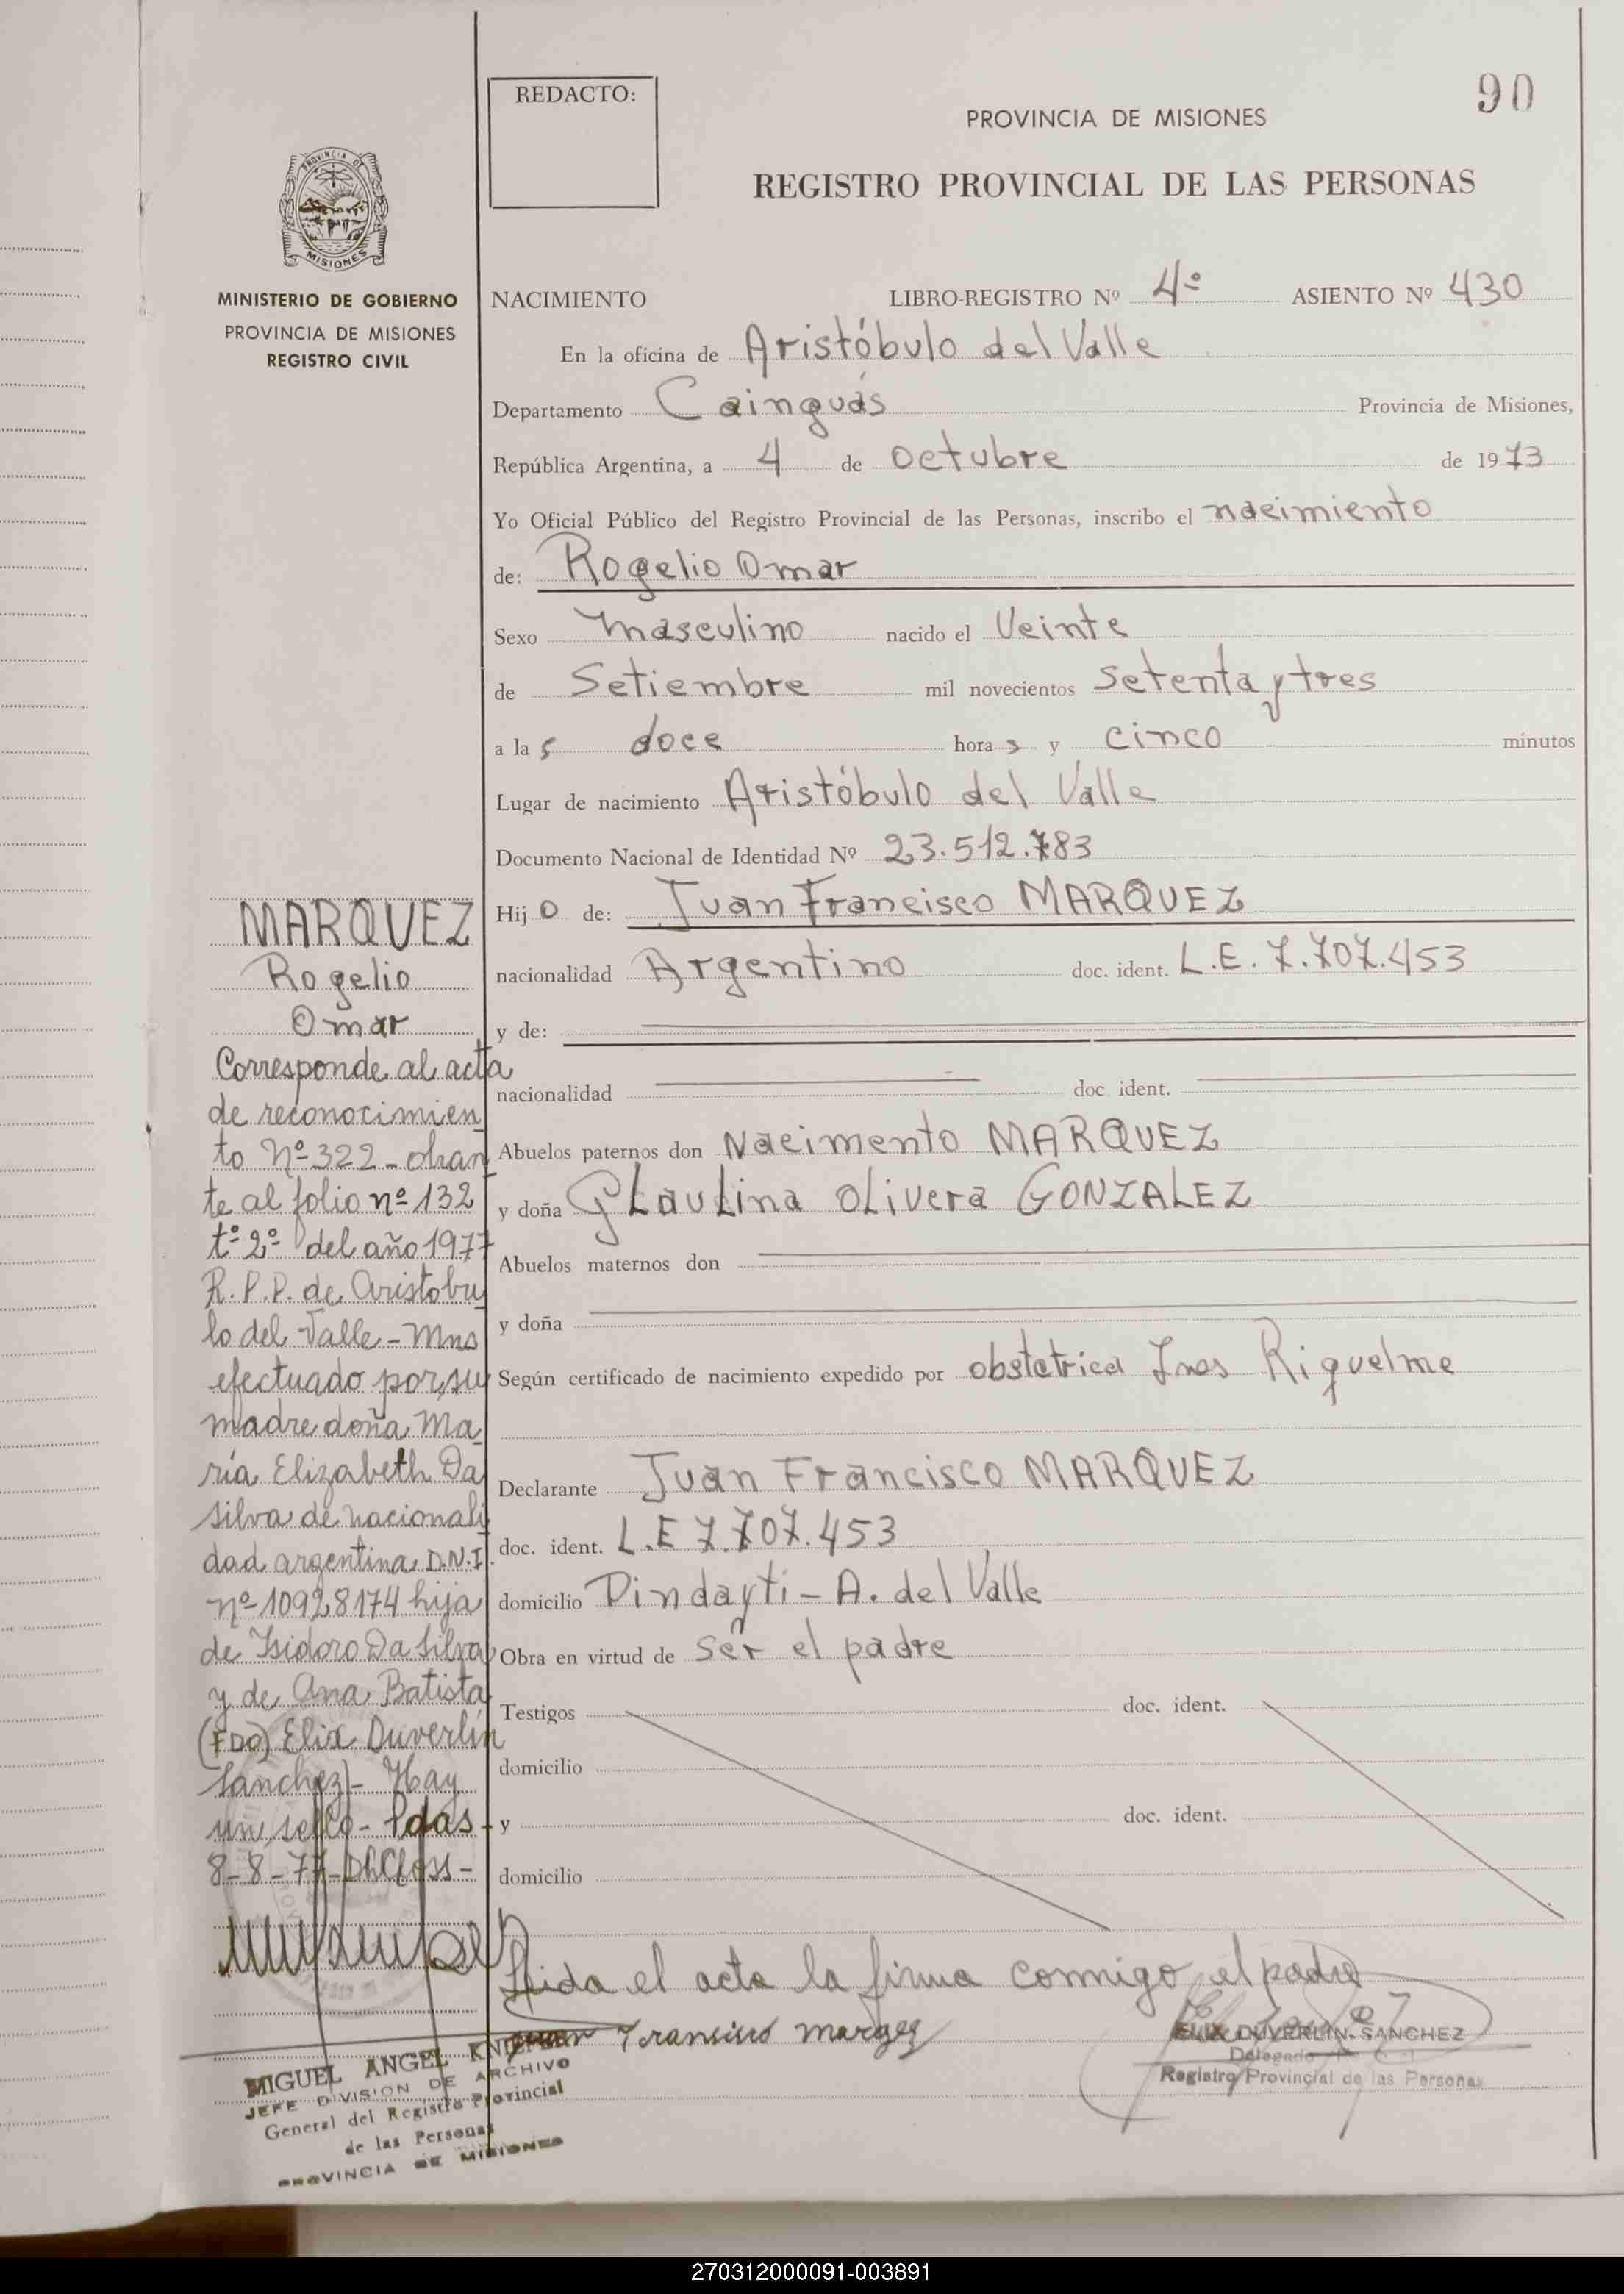 90
REDACTO:
PROVINCIA DE MISIONES
REGISTRO PROVINCIAL DE LAS PERSONAS
PROVINCIA DE
MISIONES
MINISTERIO DE GOBIERNO
PROVINCIA DE MISIONES
REGISTRO CIVIL
NACIMIENTO LIBRO-REGISTRO Nº 4º ASIENTO Nº 430
En la oficina de Aristóbulo del Valle
Departamento Cainguás Provincia de Misiones,
República Argentina, a 4 de octubre de 1973
Yo Oficial Público del Registro Provincial de las Personas, inscribo el nacimiento
de: Rogelio Omar
Sexo masculino nacido el Veinte
de Setiembre mil novecientos setenta y tres
a las doce horas y cinco minutos
Lugar de nacimiento Aristóbulo del Valle
Documento Nacional de Identidad Nº 23.512.783
Hijo de: Juan Francisco MARQUEZ
nacionalidad Argentino doc. ident. L.E. 7.707.453
y de:
nacionalidad doc ident.
Abuelos paternos don Nacimento MARQUEZ
y doña GLauLina oLivera GONZALEZ
Abuelos maternos don
y doña
Según certificado de nacimiento expedido por obstetrica Ines Riquelme
Declarante Juan Francisco MARQUEZ
doc. ident. L.E 7.707.453
domicilio Pindayti - A. del Valle
Obra en virtud de ser el padre
Testigos doc. ident.
domicilio
y doc. ident.
domicilio
Leida el acta la firma conmigo el padre
Juan Francisco Marqez
ELIX DUVERLIN SANCHEZ
Delegado
Registro Provincial de las Personas
MARQUEZ
Rogelio
Omar
Corresponde al acta
de reconocimien
to Nº 322 - obran
te al folio nº 132
tº 2º del año 1977
R.P.P. de Aristobu
lo del Valle - Mns
efectuado por su
madre doña Ma
ría Elizabeth Da
Silva de nacionali
dad argentina D.N.I.
nº 10928174 hija
de Isidoro Da Silva
y de Ana Batista
(FDO) Elix Duverlin
Sanchez - Hay
un sello - Pdas -
8-8-77-
MIGUEL ANGEL
JEFE DIVISION DE ARCHIVO
General del Registro Provincial
de las Personas
PROVINCIA DE MISIONES
270312000091-003891